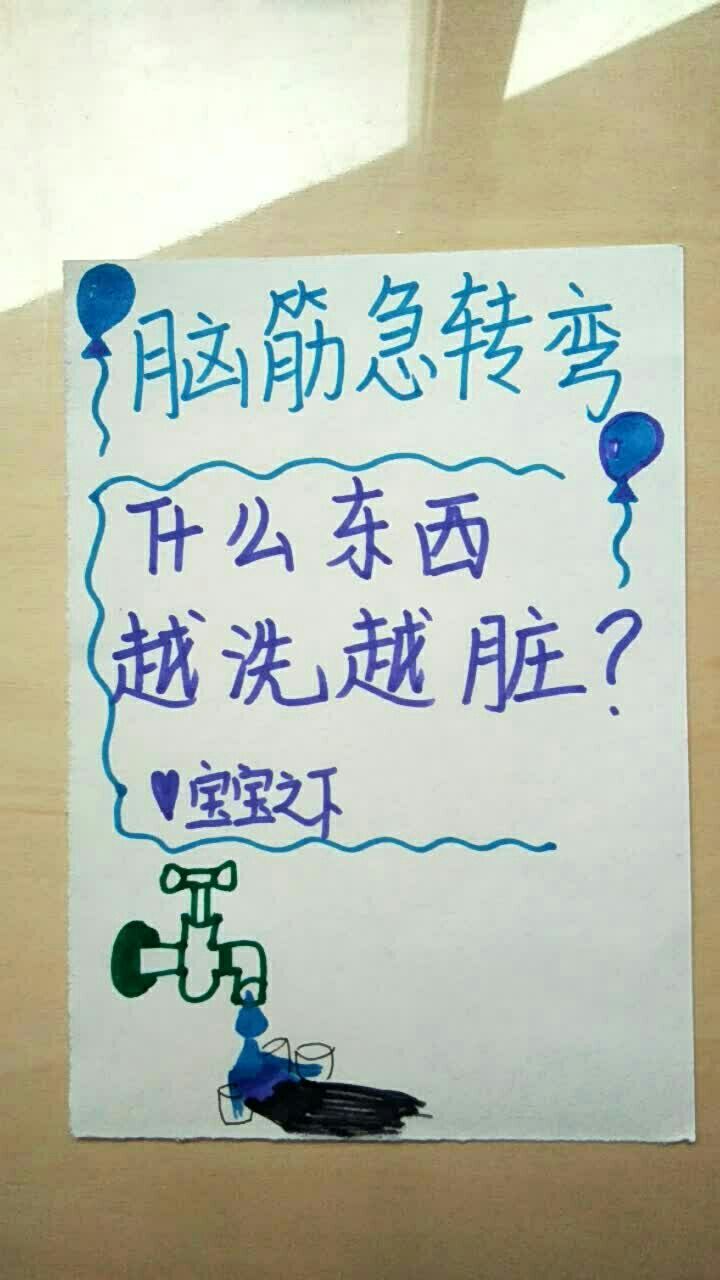 脑筋急转弯
什么东西
越洗越脏?
♥宝宝之下